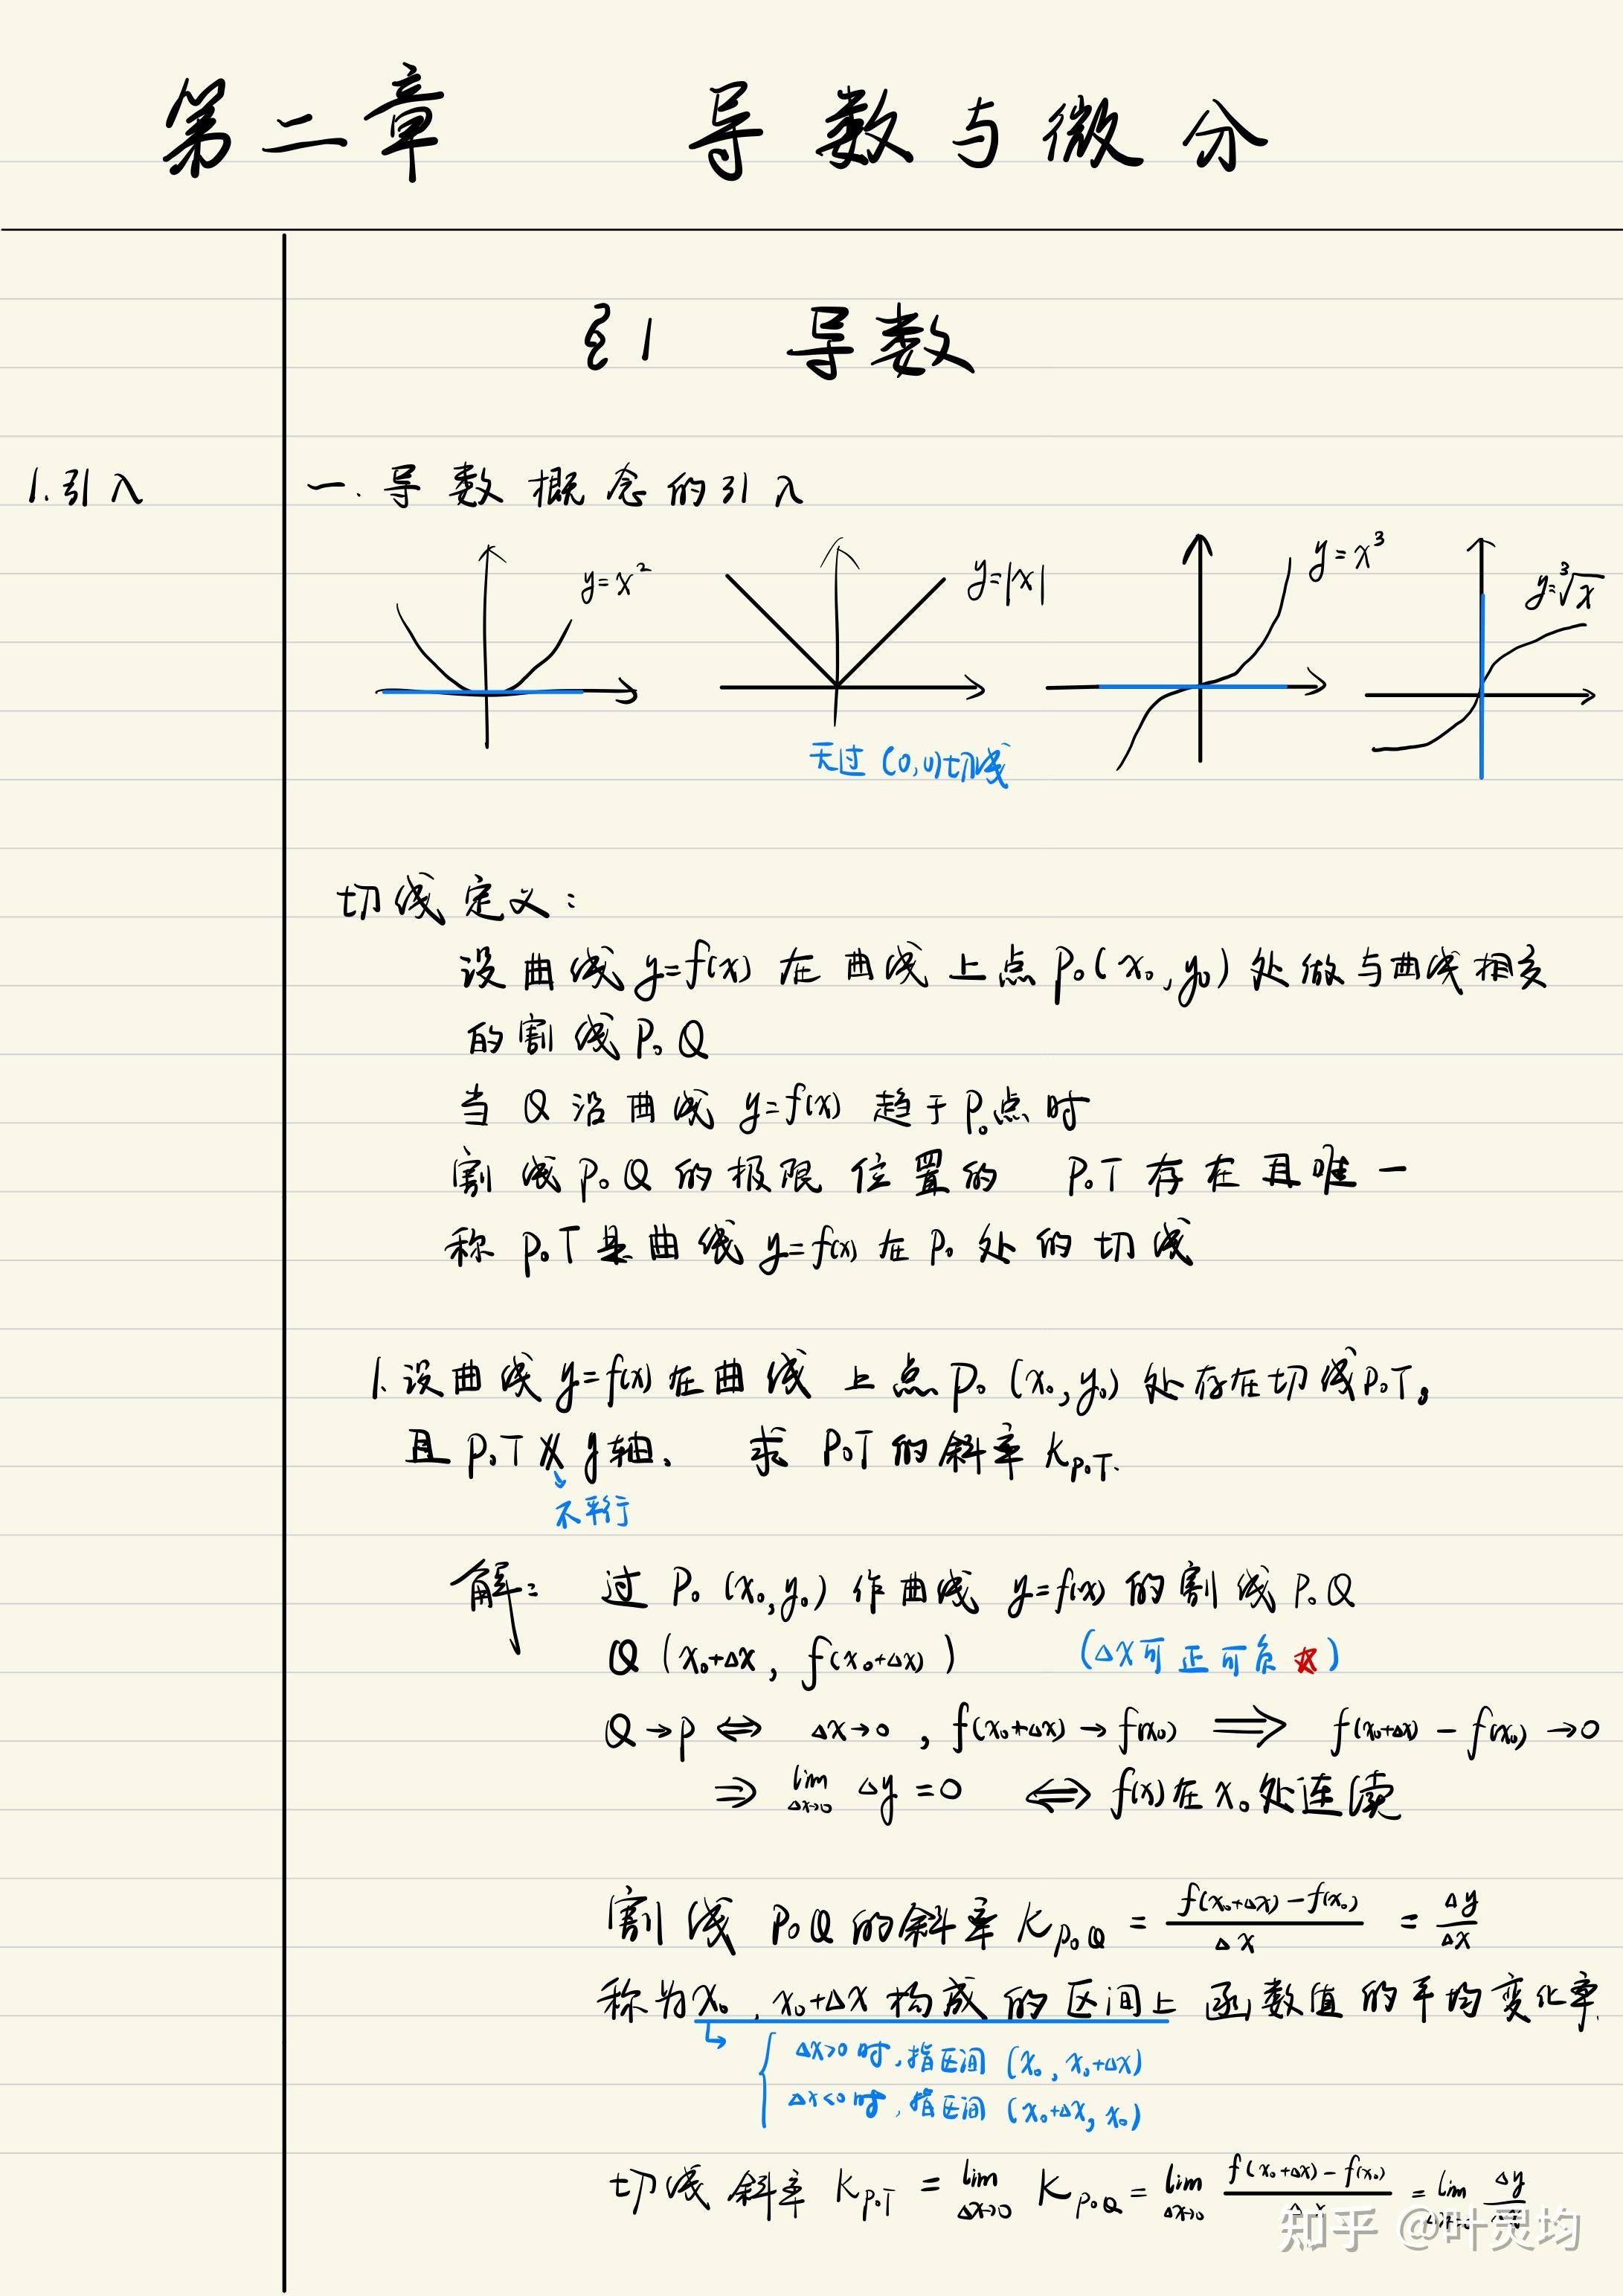 第二章 导数与微分
§1 导数
1.引入
一.导数概念的引入
y=x²
y=|x|
y=x³
y=³√x
无过(0,0)切线
切线定义:
设曲线y=f(x)在曲线上点P₀(x₀,y₀)处做与曲线相交
的割线P₀Q
当Q沿曲线y=f(x)趋于P₀点时
割线P₀Q的极限位置的 P₀T存在且唯一
称P₀T是曲线y=f(x)在P₀处的切线
1.设曲线y=f(x)在曲线上点P₀(x₀,y₀)处存在切线P₀T,
且P₀T∦y轴. 求P₀T的斜率K_{P₀T}.
不平行
解: 过P₀(x₀,y₀)作曲线y=f(x)的割线P₀Q
Q(x₀+Δx, f(x₀+Δx)) (Δx可正可负☆)
Q→P ⇔ Δx→0, f(x₀+Δx)→f(x₀) ⟹ f(x₀+Δx)-f(x₀)→0
⇒ lim_{Δx→0} Δy=0 ⟺ f(x)在x₀处连续
割线P₀Q的斜率K_{P₀Q} = (f(x₀+Δx)-f(x₀))/Δx = Δy/Δx
称为x₀,x₀+Δx构成的区间上函数值的平均变化率.
Δx>0时,指区间(x₀, x₀+Δx)
Δx<0时,指区间(x₀+Δx, x₀)
切线斜率K_{P₀T} = lim_{Δx→0} K_{P₀Q} = lim_{Δx→0} (f(x₀+Δx)-f(x₀))/Δx = lim_{Δx→0} Δy/Δx
知乎 @叶灵均